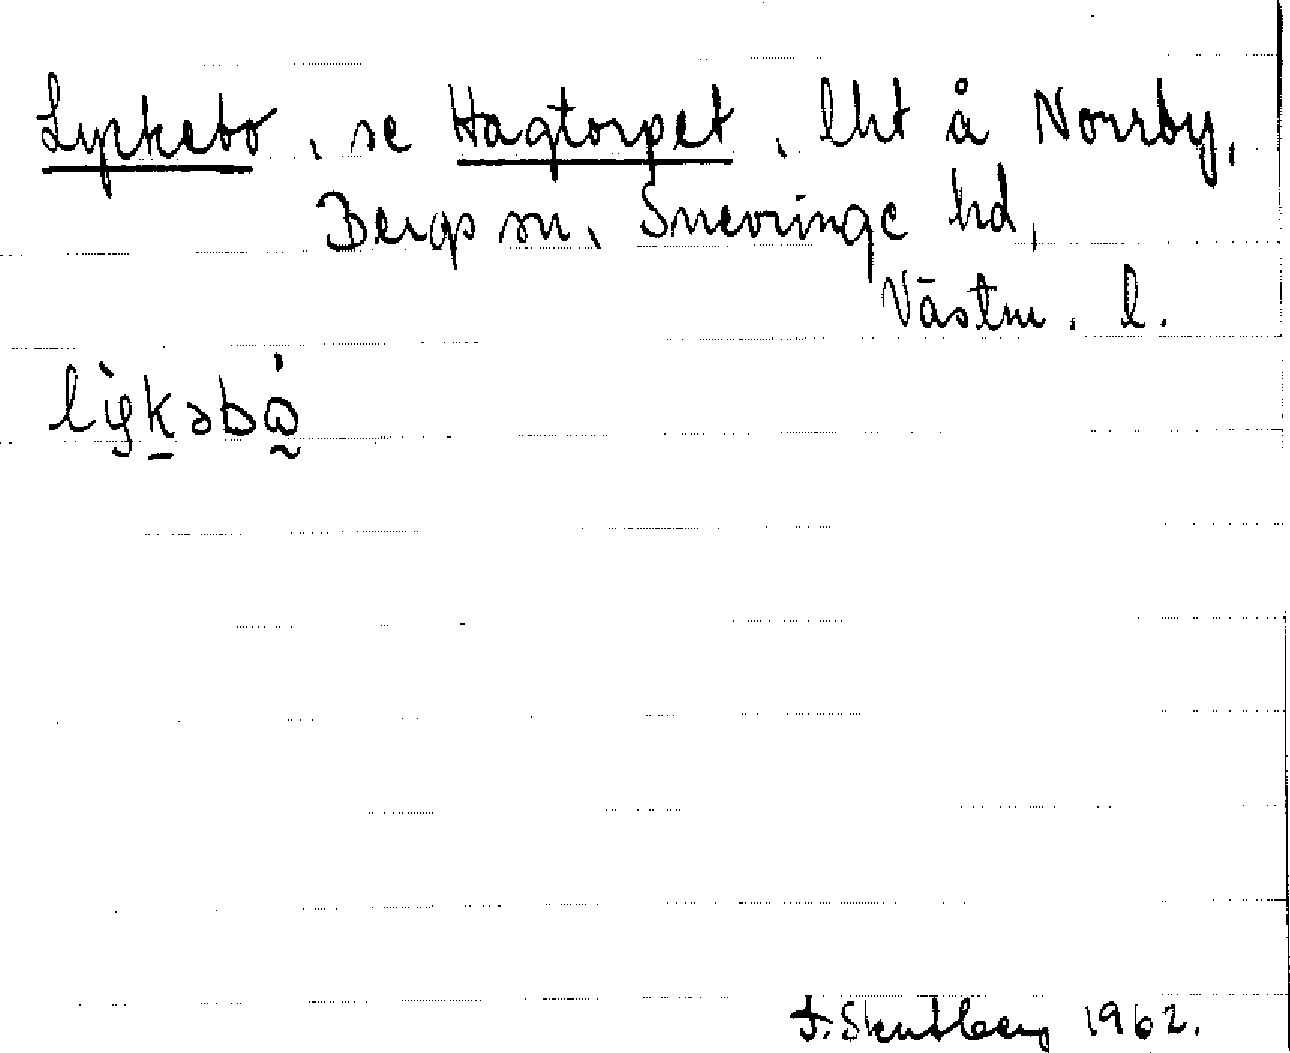 Lyckebo, se Hagtorpet, lht å Norrby,
Bergs sn, Snevringe hd,
Västm. l.
lỳkəbå̀
1962.